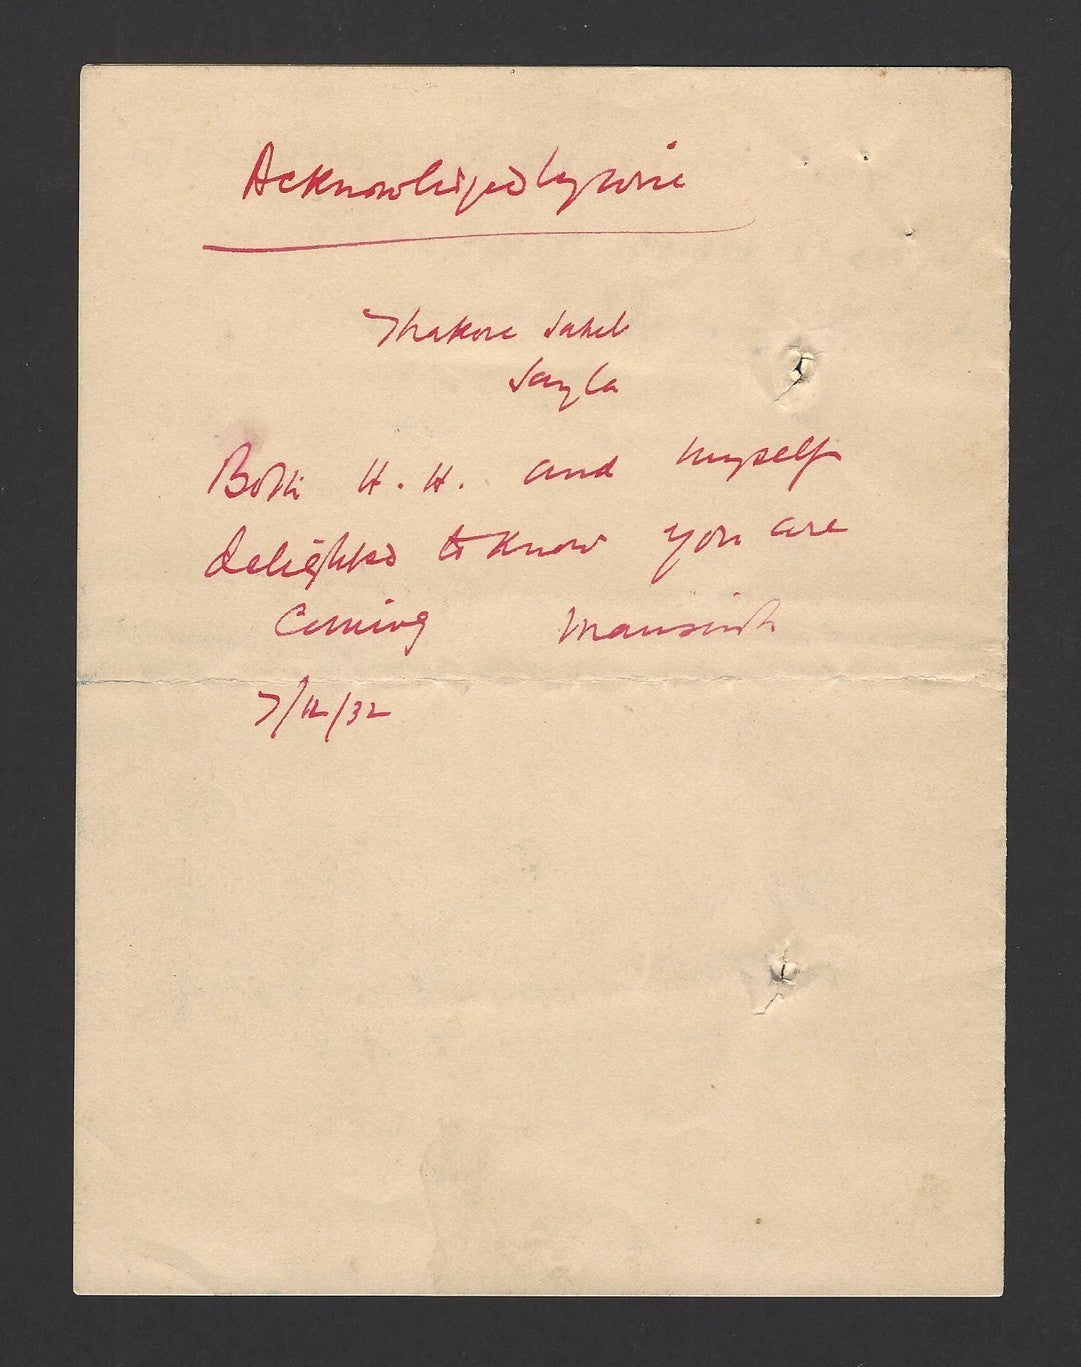 Acknowledged by wire
Thakore Saheb
Sayla
Both H. H. and myself
delighted to know you are
Coming Mansinh
7/12/32